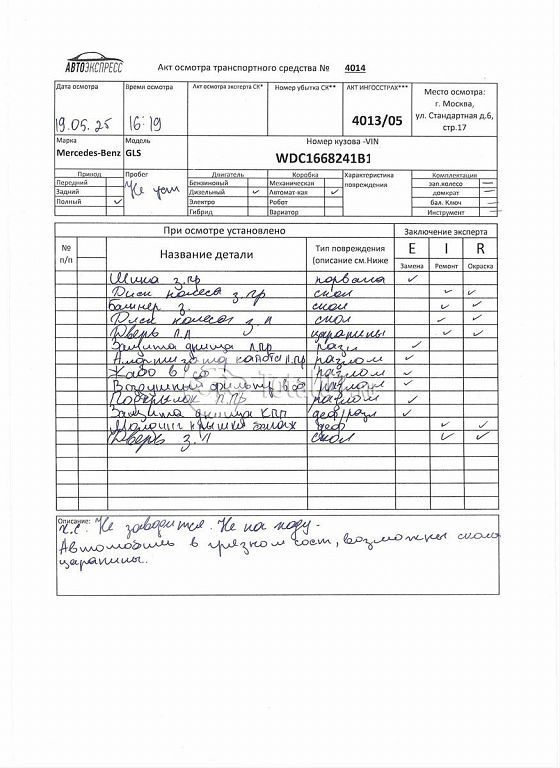 АВТОЭКСПРЕСС
Акт осмотра транспортного средства № 4014
Дата осмотра
Время осмотра
Акт осмотра эксперта СК*
Номер убытка СК**
АКТ ИНГОССТРАХ***
Место осмотра:
г. Москва,
ул. Стандартная д.6,
стр.17
19.05.25
16:19
4013/05
Марка
Модель
Номер кузова -VIN
Mercedes-Benz
GLS
WDC1668241B1
Привод
Пробег
Двигатель
Коробка
Характеристика
повреждения
Комплектация
Передний
Бензиновый
Механическая
зап.колесо —
Задний
Дизельный ✓
Автомат-кая ✓
домкрат —
Полный ✓
Не уст
Электро
Робот
бал. Ключ ✓
Гибрид
Вариатор
Инструмент —
№
п/п
При осмотре установлено
Заключение эксперта
Название детали
Тип повреждения
(описание см.Ниже
E I R
Замена Ремонт Окраска
Шина з.пр порвана ✓
Диск колеса з.пр скол ✓ ✓
Бампер з. скол ✓ ✓
Диск колеса з л скол ✓ ✓
Дверь п.л царапины ✓ ✓
Защита днища п.пр разл ✓
Аморти за та капота п.пр разлом ✓
Жабо в сб разлом ✓
Воздушный фильтр разлом ✓
Подкрылок п.пр разлом ✓
Защита днища КПП деф/разл ✓
Молдинг крышки багаж деф ✓ ✓
Дверь з.л скол ✓ ✓
Описание:
Не заводится. Не на ходу.
Автомобиль в грязном сост, возможны сколы
царапины.